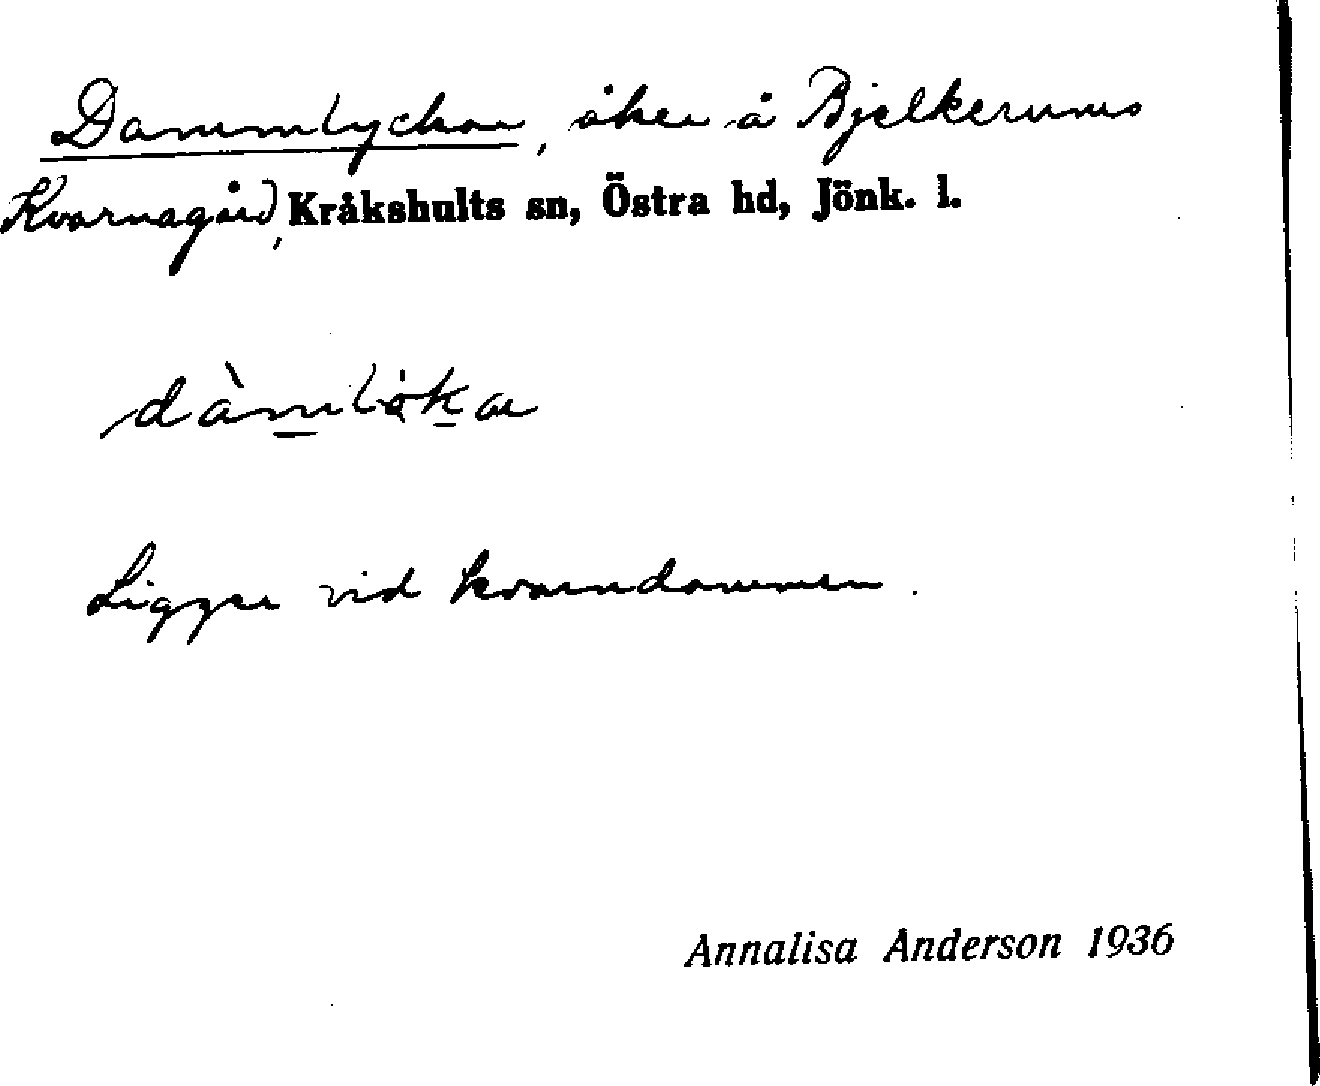 Dammlyckan, åker å Bjelkerums
Kvarnagård, Kråkshults sn, Östra hd, Jönk. l.
Ligger vid kvarndammen.
Annalisa Anderson 1936